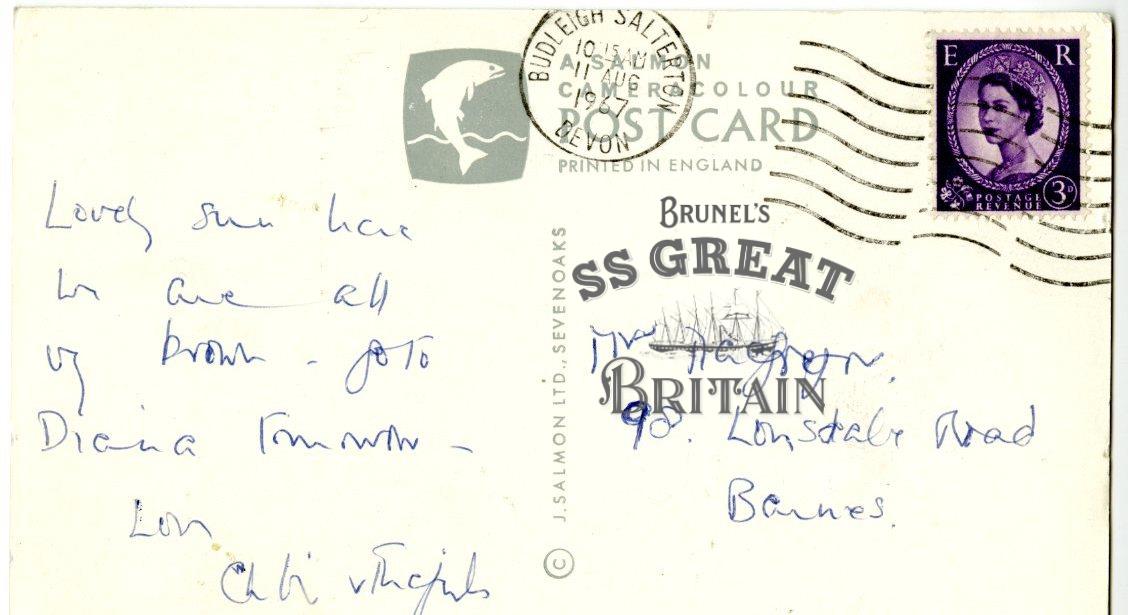 BUDLEIGH SALTERTON
10.15 AM
11 AUG
1967
DEVON
A SALMON
CAMERACOLOUR
POST CARD
PRINTED IN ENGLAND
E R
POSTAGE
REVENUE
3D
BRUNEL'S
SS GREAT
BRITAIN
J. SALMON LTD., SEVENOAKS ©
Lovely sun here
We are all
vy brown - go to
Diana Tomorrow -
Love
98. Lonsdale Road
Barnes.